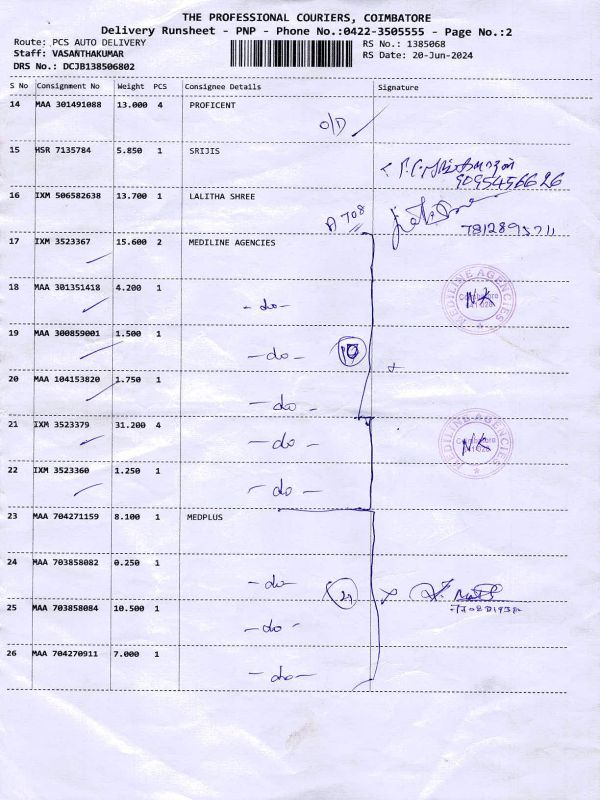 THE PROFESSIONAL COURIERS, COIMBATORE
Delivery Runsheet - PNP - Phone No.:0422-3505555 - Page No.:2
Route: PCS AUTO DELIVERY
RS No.: 1385068
Staff: VASANTHAKUMAR
RS Date: 20-Jun-2024
DRS No.: DCJB138506802
S No Consignment No Weight PCS Consignee Details Signature
14 MAA 301491088 13.000 4 PROFICENT
O/D
15 HSR 7135784 5.850 1 SRIJIS
9095456626
16 IXM 506582638 13.700 1 LALITHA SHREE
17 IXM 3523367 15.600 2 MEDILINE AGENCIES
18 MAA 301351418 4.200 1
-do-
MEDILINE AGENCIES
NK
19 MAA 300859001 1.500 1
-do-
20 MAA 104153820 1.750 1
-do-
21 IXM 3523379 31.200 4
-do-
MEDILINE AGENCIES
NK
22 IXM 3523360 1.250 1
-do-
23 MAA 704271159 8.100 1 MEDPLUS
24 MAA 703858082 0.250 1
-do-
25 MAA 703858084 10.500 1
-do-
26 MAA 704270911 7.000 1
-do-